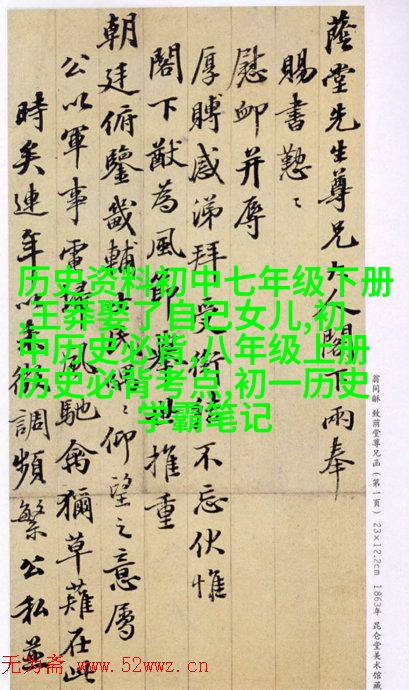 蔭堂先生尊兄大人閣下兩奉
賜書懃〻
慰卹并辱
厚賻感涕拜受銜不忘伏惟
閣下猷為風節推重
朝廷俯鑒畿輔喁〻仰望之意屬
公以軍事雷掃風馳禽獮草薙在此
時矣連年以來調頻繁公私並
历史资料初中七年级下册
,王莽娶了自己女儿,初
中历史必背,八年级上册
历史必背考点,初一历史
学霸笔记
翁同龢 致荫堂尊兄函（第一頁） 23×12.2cm 1863年 昆仑堂美术馆藏
无为斋 www.52wwz.cn